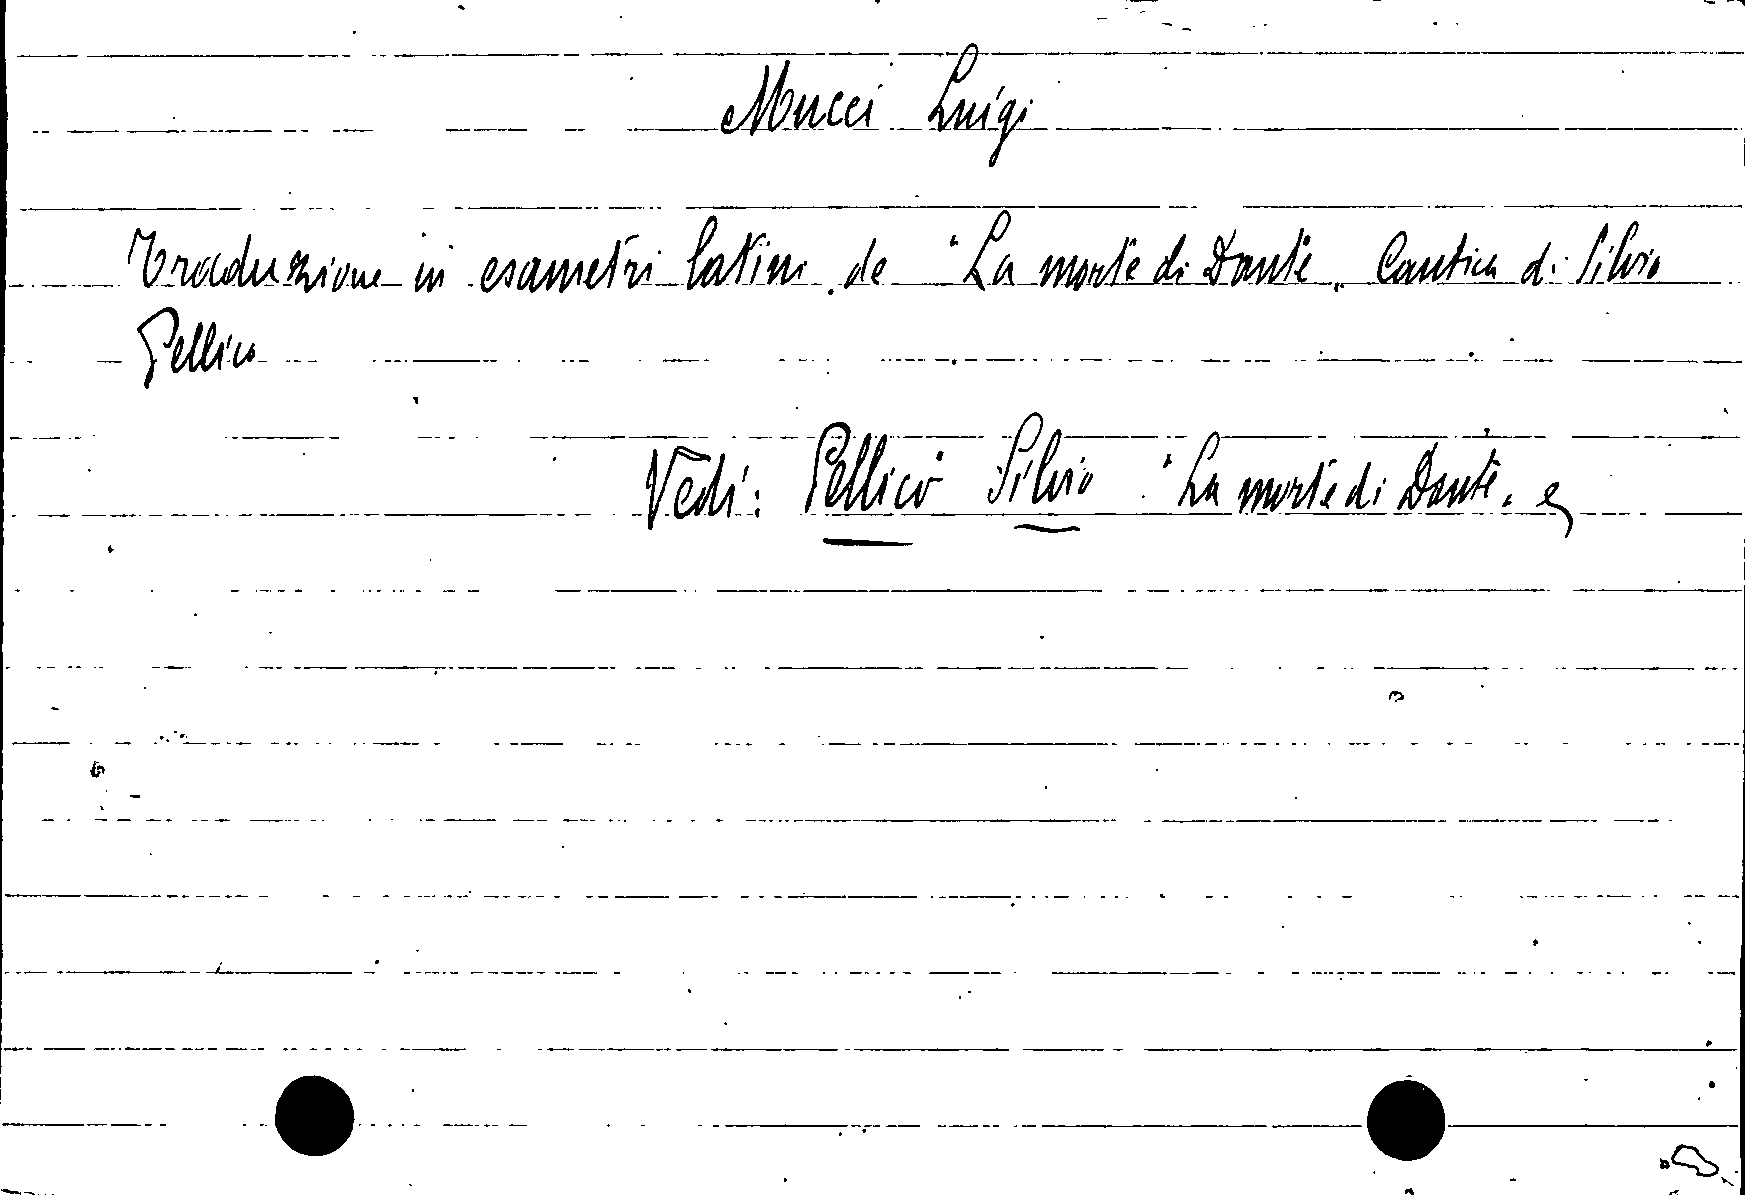 Mucci Luigi
Traduzione in esametri latini de "La morte di Dante" Cantica di Silvio
Pellico
Vedi: Pellico Silvio "La morte di Dante" e